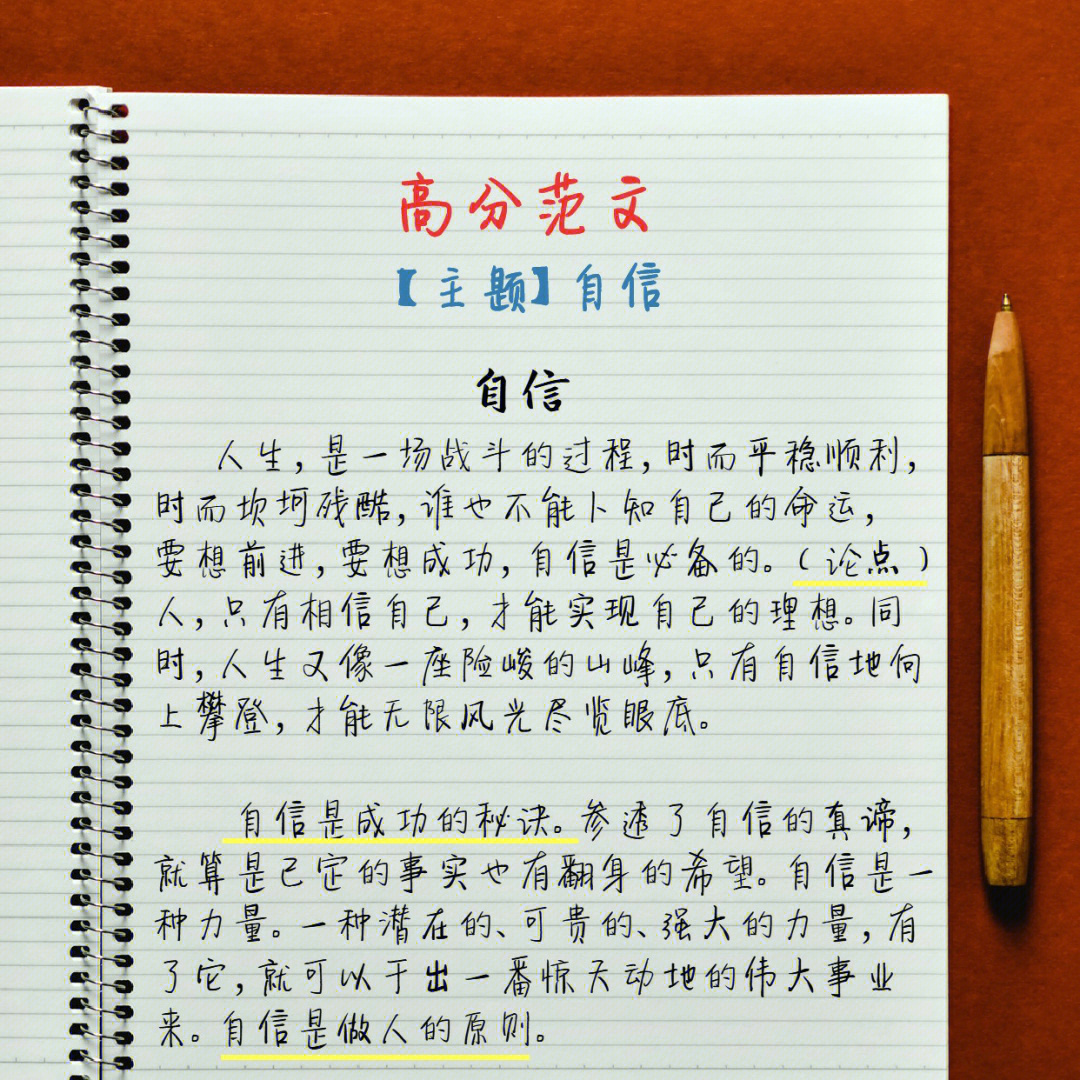 高分范文
【主题】自信
自信
人生，是一场战斗的过程，时而平稳顺利，
时而坎坷残酷，谁也不能卜知自己的命运，
要想前进，要想成功，自信是必备的。（论点）
人，只有相信自己，才能实现自己的理想。同
时，人生又像一座险峻的山峰，只有自信地向
上攀登，才能无限风光尽览眼底。
自信是成功的秘诀。参透了自信的真谛，
就算是已定的事实也有翻身的希望。自信是一
种力量。一种潜在的、可贵的、强大的力量，有
了它，就可以干出一番惊天动地的伟大事业
来。自信是做人的原则。